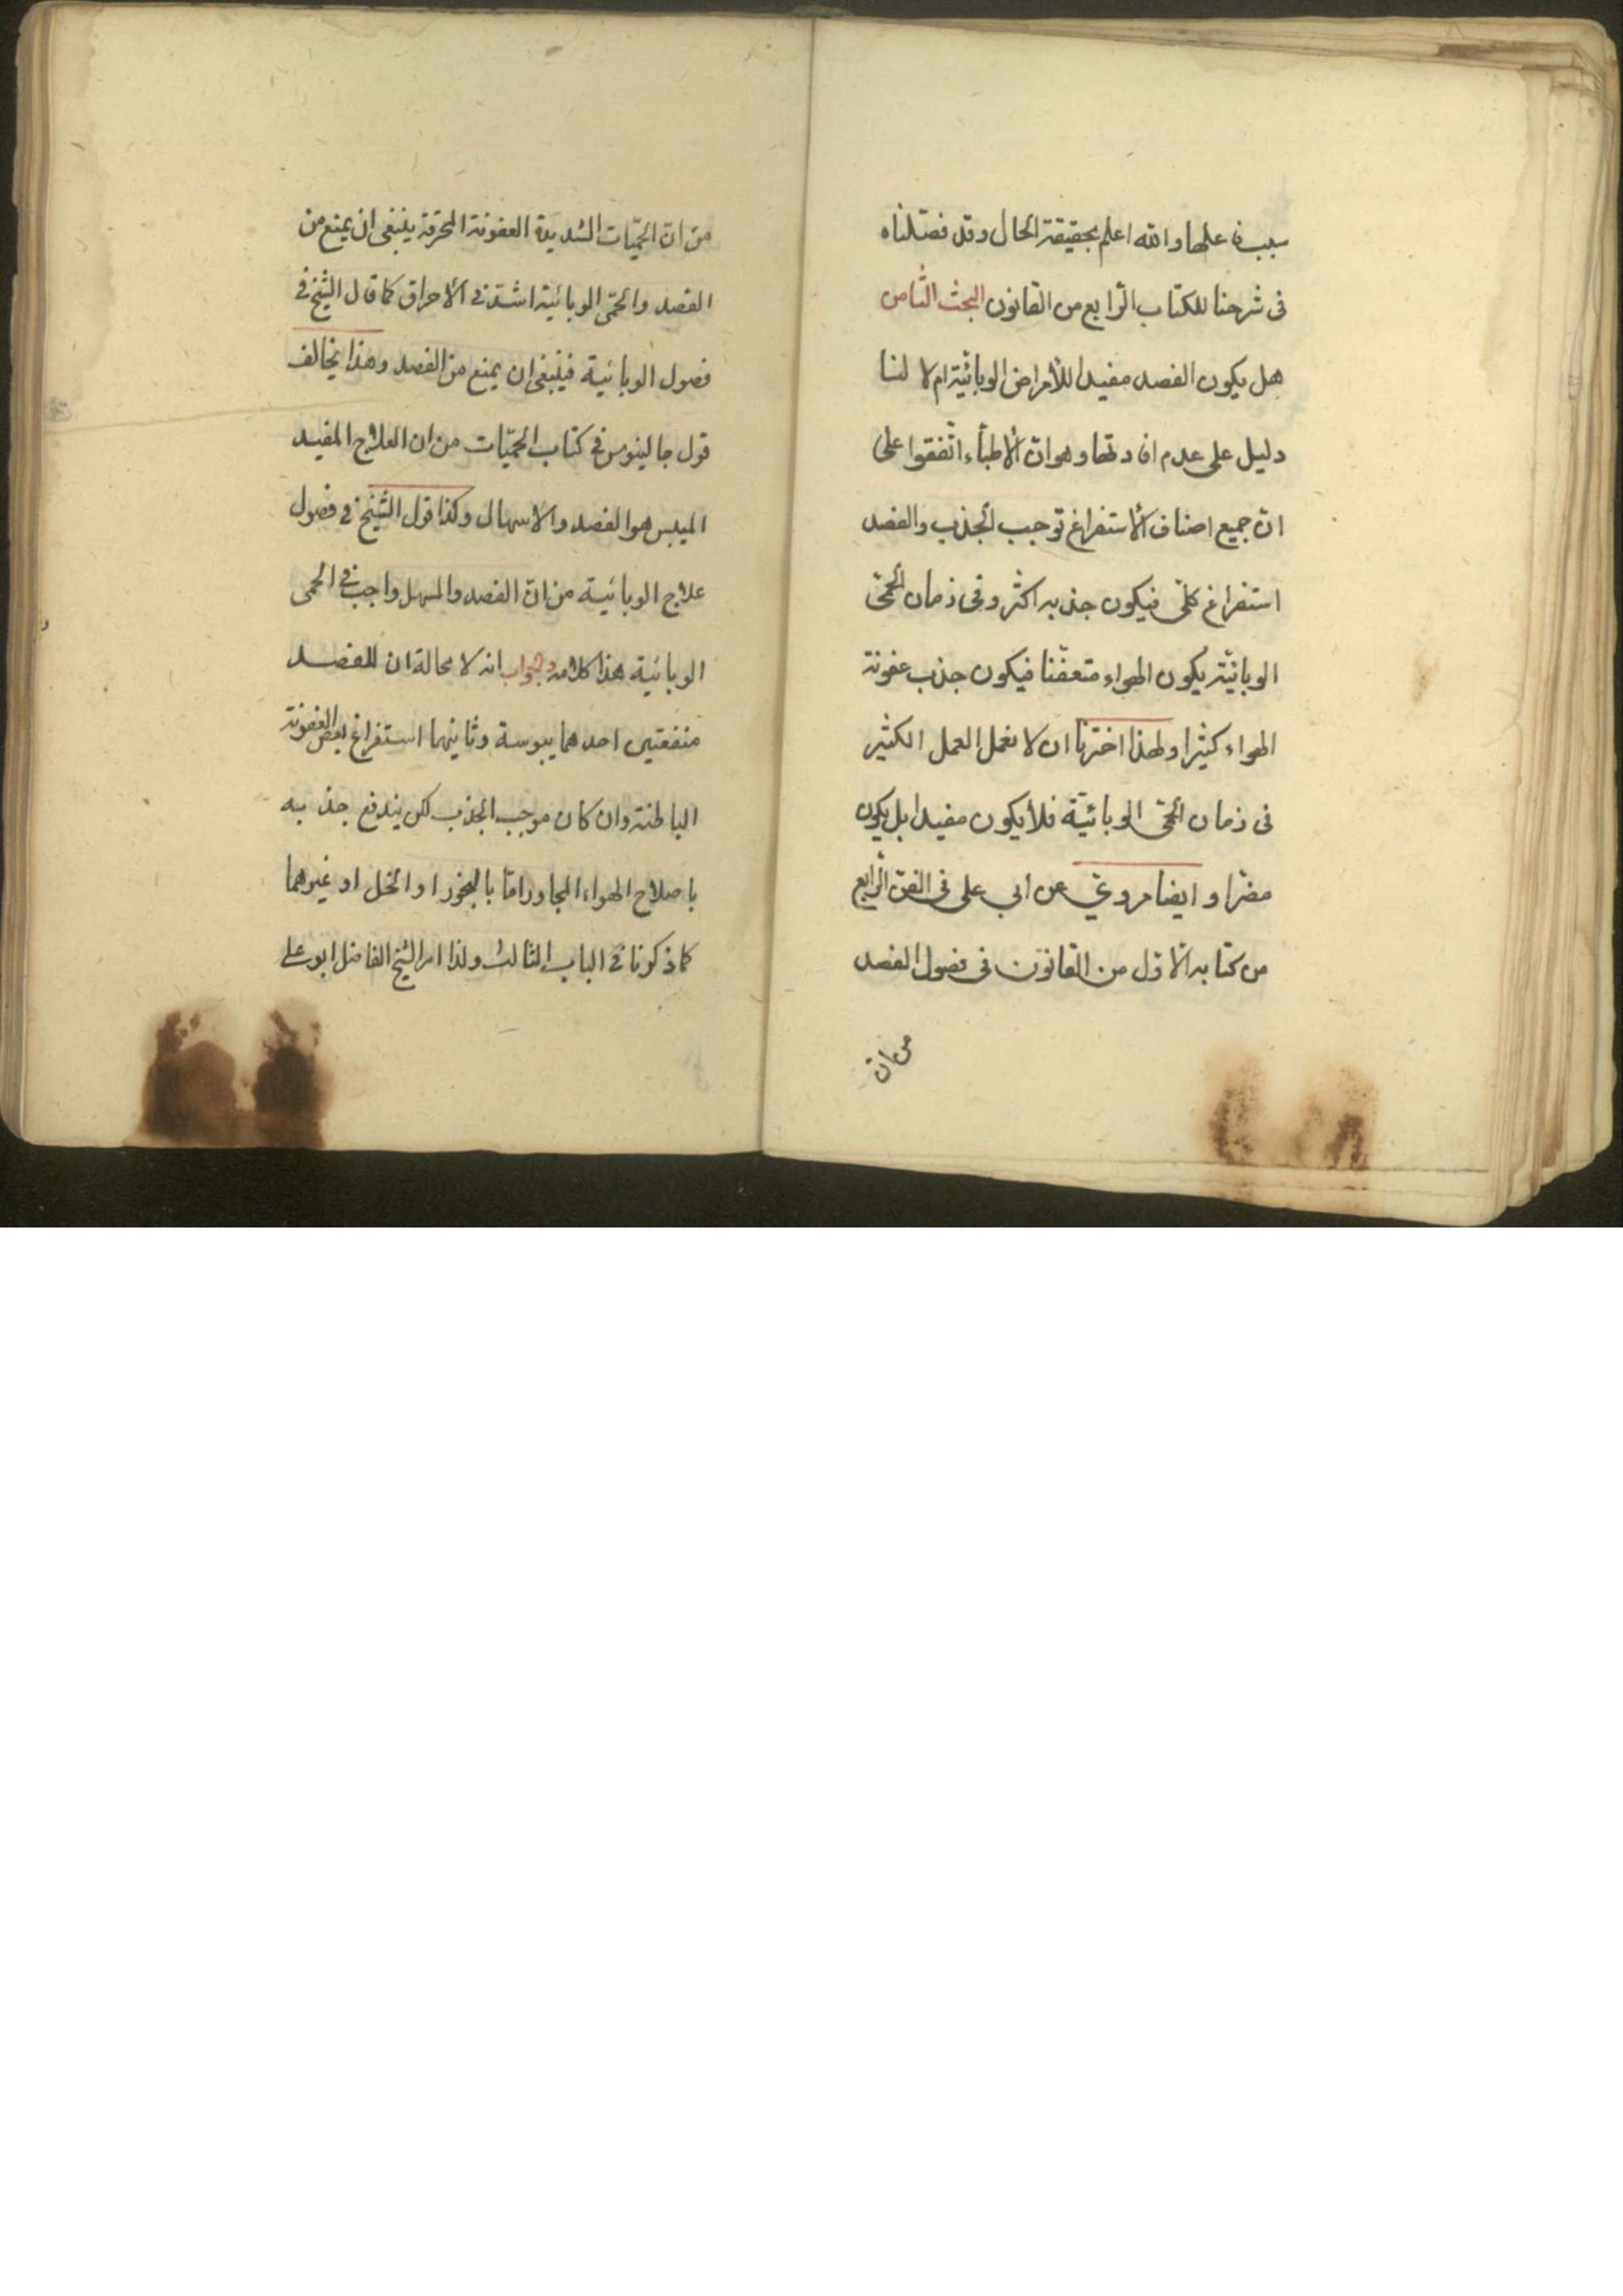 بسبب فاعلها والله اعلم بحقيقة الحال وقد فصّلناه
فى شرحنا للكتاب الرّابع من القانون البحث الثامن
هل يكون الفصد مفيدا للأمراض الوبائيّة ام لا لنا
دليل على عدم افادتها وهو انّ الأطبّاء اتّفقوا على
انّ جميع اصناف الأستفراغ توجب الجذب والفصد
استفراغ كلّى فيكون جذبه اكثر وفى زمان الحمّى
الوبائيّة يكون الهواء متعفّنا فيكون جذب عفونة
الهواء كثيرا ولهذا اخترنا ان لا نعمل العمل الكثير
فى زمان الحمّى الوبائيّة فلا يكون مفيدا بل يكون
مضرّا وايضا مروىّ عن ابى على فى الفنّ الرّابع
من كتابه الاوّل من القانون فى فصول الفصد
من انّ
من انّ الحمّيات الشديدة العفونة المحرقة ينبغى ان يمنع من
الفصد والحمّى الوبائية اشدّ فى الاحراق كما قال الشيخ فى
فصول الوبائية فينبغى ان يمنع من الفصد وهذا يخالف
قول جالينوس فى كتاب الحمّيات من ان العلاج المفيد
الميبس هو الفصد والاسهال وكذا قول الشيخ فى فصول
علاج الوبائية من انّ الفصد والمسهل واجب فى الحمى
الوبائية هذا كلامه وجواب انه لا محالة ان للفصد
منفعتين احدهما يبوسة وثانيهما استفراغ بعض العفونة
الباطنة وان كان موجب الجذب لكن يندفع جذبه
باصلاح الهواء المجاور امّا بالبخور او الخل او غيرهما
كما ذكرنا فى الباب الثالث ولذا امر الشيخ الفاضل ابو على